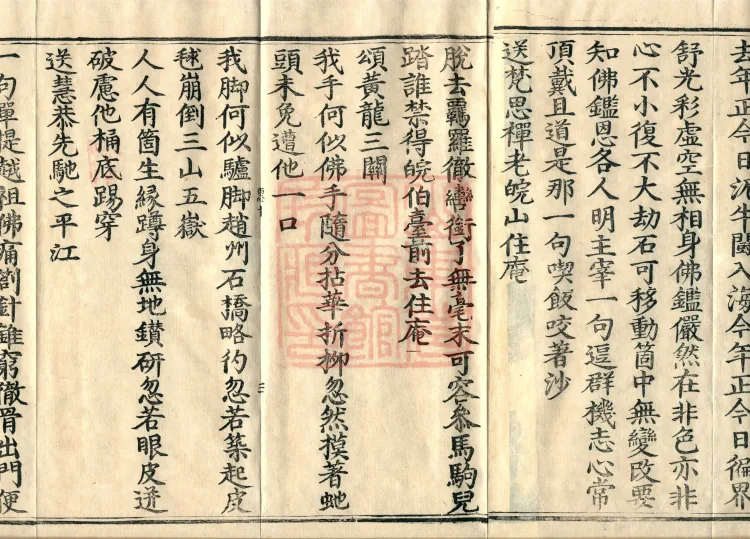 去年正今日泥牛鬪入海今年正今日徧界
舒光彩虛空無相身佛鑑儼然在非色亦非
心不小復不大劫石可移動箇中無變改要
知佛鑑恩各人明主宰一句逗群機志心常
頂戴且道是那一句喫飯咬著沙
送梵思禪老皖山住庵
脫去羈羅徹轡銜了無毫末可容叅馬駒兒
踏誰禁得皖伯臺前去住庵
頌黃龍三關
我手何似佛手隨分拈華折柳忽然摸著虵
頭未免遭他一口
我脚何似驢脚趙州石橋略彴忽若築起皮
毬崩倒三山五嶽
人人有箇生緣蹲身無地鑽研忽若眼皮迸
破慮他桶底踢穿
送慧恭先馳之平江
一句單提越祖佛痛劄針錐窮徹骨出門便